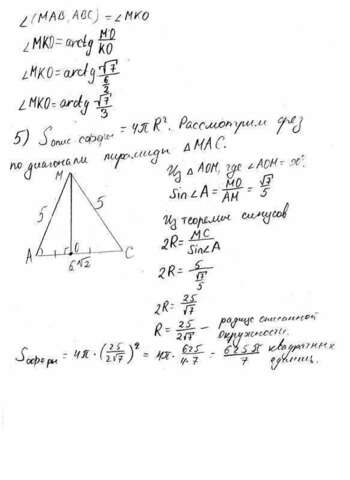 ∠(MAB, ABC) = ∠MKO
∠MKO = arctg MO/KO
∠MKO = arctg √7/(6/2)
∠MKO = arctg √7/3
5) Sопис сферы = 4πR². Рассмотрим срез
по диагонали пирамиды △MAC.
M
5
5
A
O
C
6√2
Из △AOM, где ∠AOM = 90°.
Sin∠A = MO/AM = √7/5
Из теоремы синусов
2R = MC/Sin∠A
2R = 5/(√7/5)
2R = 25/√7
R = 25/2√7 — радиус описанной
окружности.
Sсферы = 4π · (25/2√7)² = 4π · 625/4·7 = 625π/7 квадратных
единиц.